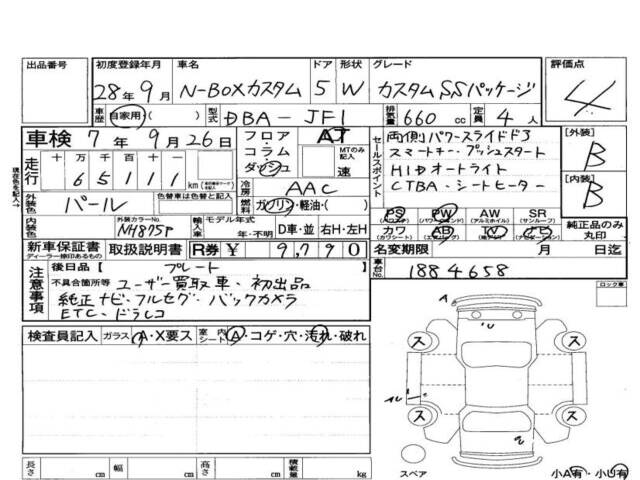 出品番号
初度登録年月
車名
ドア 形状
グレード
評価点
28年9月
N-BOXカスタム
5 W
カスタムSSパッケージ
4
車歴 自家用・( )
型式 DBA-JF1
排気量 660 cc
定員 4 人
車検 7年9月26日
フロア・コラム・ダッシュ
AT
MTのみ記入
速
セールスポイント
両側パワースライドドア
スマートキー・プッシュスタート
HIDオートライト
CTBA・シートヒーター
[外装] B
[内装] B
現在色を記入→
走行
十 万 千 百 十
6 5 1 1 1
冷房 AAC
外装色 パール
色替車は色替と記入
燃料 ガソリン・軽油・( )
PS PW AW SR
(パワーウインド) (アルミホイル) (サンルーフ)
カワ AB TV ナビ
(カワシート) (エアバッグ) (ナビゲーション)
純正品のみ丸印
外装カラーNo. NH875P
輸入車 モデル年式
年・不明
D車・並 右H・左H
新車保証書
ディーラー捺印あるもの
取扱説明書
R券 ¥ 9,790
名変期限 月 日迄
注意事項
後日品[ プレート ]
不具合箇所等 ユーザー買取車・初出品
純正ナビ・フルセグ・バックカメラ
ETC・ドラレコ
車台No. 1884658
ロック車
検査員記入
ガラス A・X要ス
室内シート A・コゲ・穴・汚れ・破れ
ス ス
ス ス
スペア
小A有・小U有
長さ cm 幅 cm 高さ cm 積載量 kg